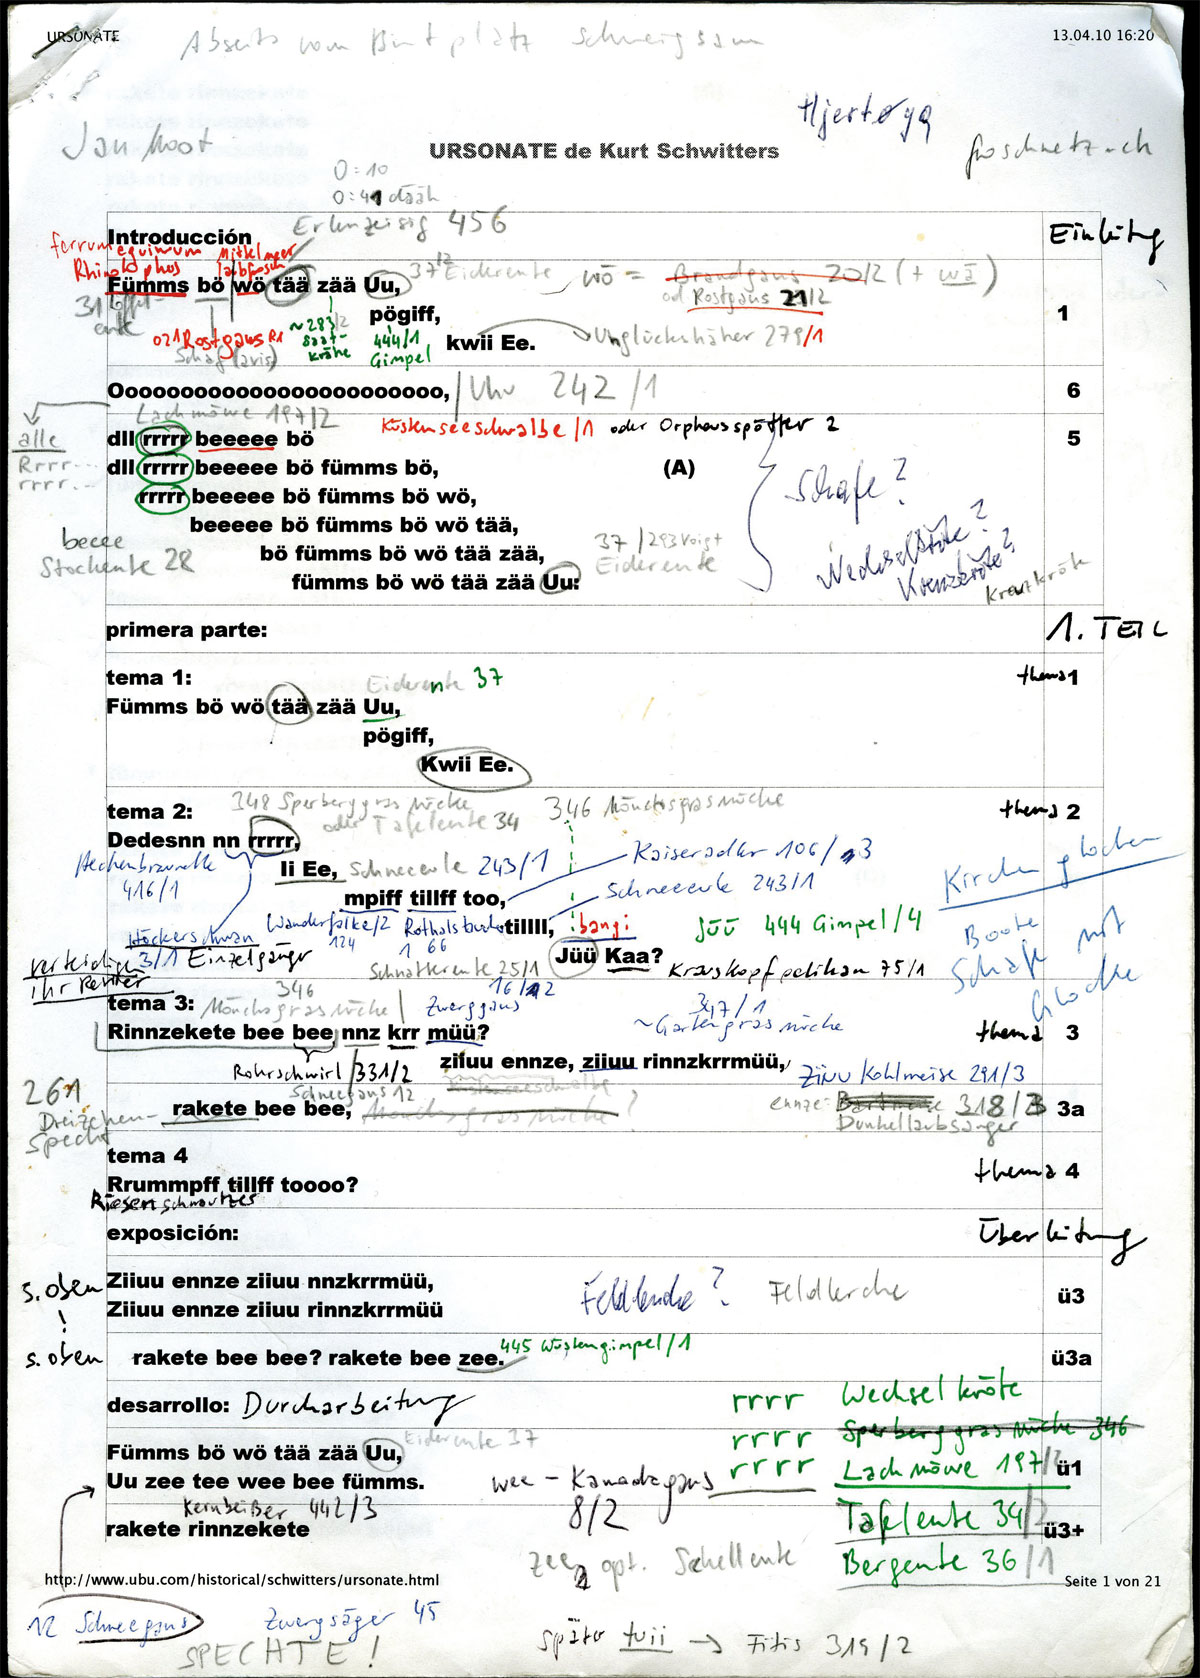 URSONATE
13.04.10 16:20
Abseits vom
Hjertøya
URSONATE de Kurt Schwitters
0:10
0:41 dääh
Erlenzeisig 456
Introducción
Einleitung
ferrum equinum
Rhinolophos
Mittelmeer
laubfrosch
Fümms bö wö tää zää Uu,
37/2 Eiderente
wö = Brandgans 20/2 (+ wä)
od Rostgans 21/2
pögiff,
1
021 Rostgans R1
Schaf (avis)
~283/2
Saat-
krähe
444/1
Gimpel
kwii Ee.
Unglückshäher 279/1
Ooooooooooooooooooooooooo,
Uhu 242/1
6
Lachmöwe 197/2
alle
Rrrr...
rrrr...
dll rrrrr beeeee bö
Küstenseeschwalbe/1 oder Orpheusspötter 2
5
dll rrrrr beeeee bö fümms bö,
(A)
rrrrr beeeee bö fümms bö wö,
Schafe?
beeeee bö fümms bö wö tää,
beeee
Stockente 28
bö fümms bö wö tää zää,
37/293 Voigt
Eiderente
Wechselkröte?
Kreuzkröte?
Kreuzkröte
fümms bö wö tää zää Uu:
primera parte:
1. TEIL
tema 1:
Eiderente 37
thema 1
Fümms bö wö tää zää Uu,
pögiff,
Kwii Ee.
tema 2:
348 Sperbergrasmücke
oder Tafelente 34
346 Mönchsgrasmücke
thema 2
Dedesnn nn rrrrr,
Heckenbraunelle
416/1
Ii Ee,
Schneeeule 243/1
Kaiseradler 106/3
Kirchenglocken
mpiff tillff too,
Schneeeule 243/1
Höckerschwan
3/1 Einzelgänger
Wanderfalke/2
124
Rothalstaucher
1 66
tillll,
bangi
Jüü 444 Gimpel/4
Boote
Schafe mit
Glocke
verteidigen
ihr Revier
Schnatterente 25/1
Jüü Kaa?
Krauskopfpelikan 75/1
tema 3:
346
Mönchsgrasmücke
Zwerggans
16/2
347/1
~Gartengrasmücke
Rinnzekete bee bee nnz krr müü?
thema 3
Rohrschwirl 331/2
ziiuu ennze, ziiuu rinnzkrrmüü,
Ziiuu Kohlmeise 291/3
261
Dreizehen-
specht
Schneegans 12
rakete bee bee,
Mönchsgrasmücke?
ennze: Bartmeise 318/3
Dunkellaubsänger
3a
tema 4
Rrummpff tillff toooo?
thema 4
Riesenschnautzes
exposición:
Überleitung
s. oben
!
Ziiuu ennze ziiuu nnzkrrmüü,
Ziiuu ennze ziiuu rinnzkrrmüü
Feldlerche?
Feldlerche
ü3
s. oben
rakete bee bee? rakete bee zee.
445 Wüstengimpel/1
ü3a
desarrollo:
Durcharbeitung
rrrr Wechselkröte
rrrr Sperbergrasmücke 346
Fümms bö wö tää zää Uu,
Eiderente 37
Uu zee tee wee bee fümms.
wee – Kanadagans
8/2
rrrr Lachmöwe 197/2
ü1
Kernbeißer 442/3
rakete rinnzekete
Tafelente 34/2
ü3+
zee opt. Schellente
Bergente 36/1
http://www.ubu.com/historical/schwitters/ursonate.html
Seite 1 von 21
12 Schneegans
Zwergsäger 45
SPECHTE!
später tuii → Fitis 319/2